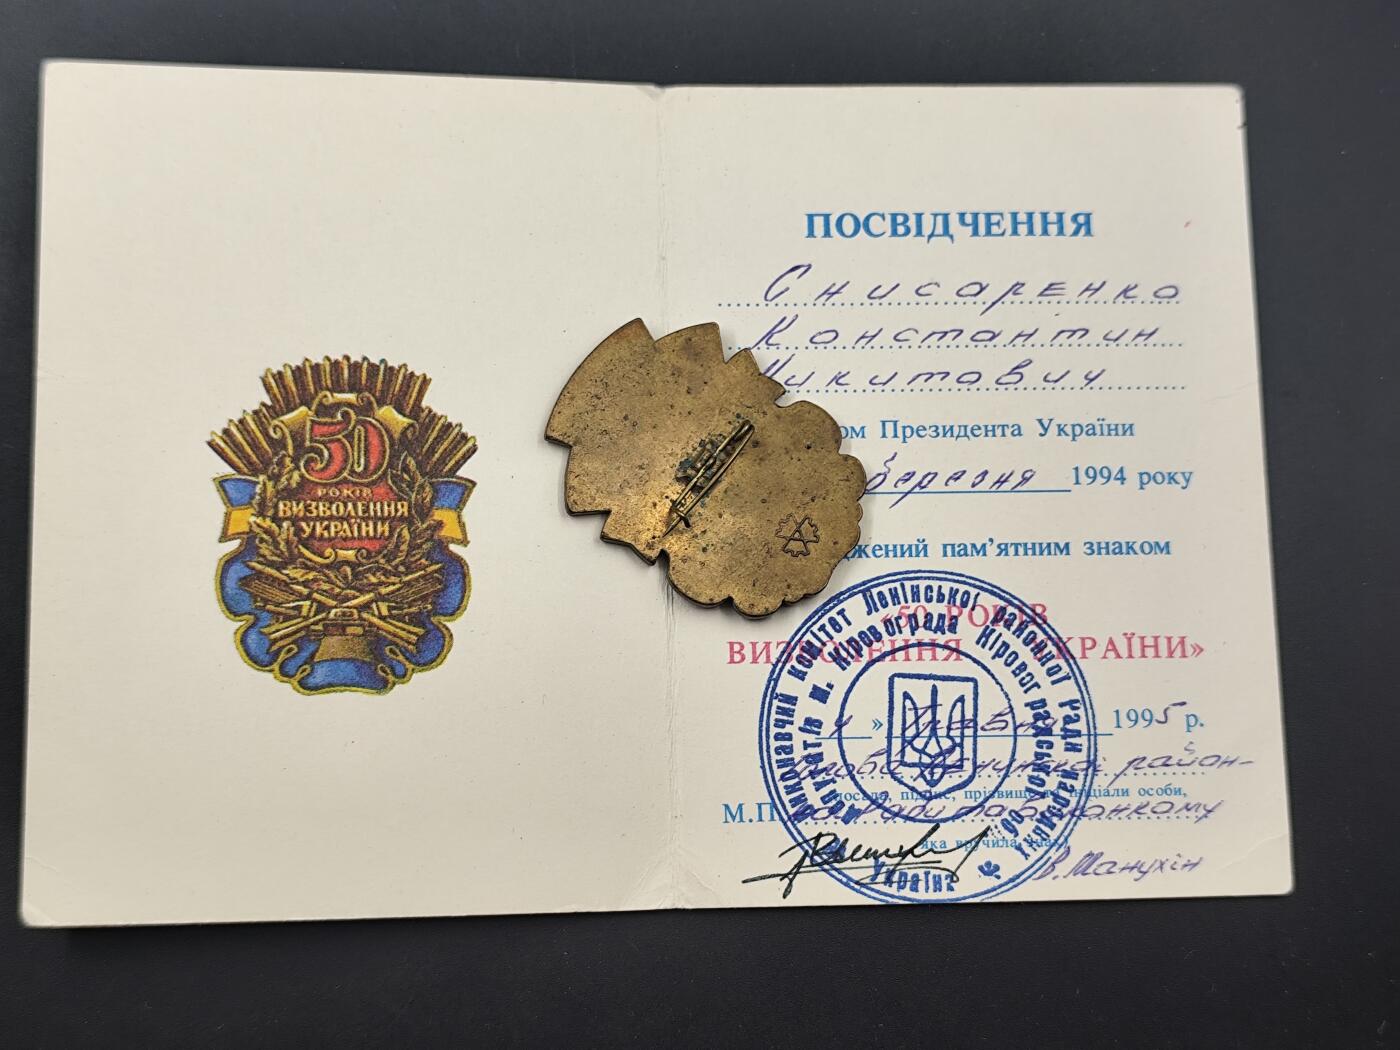 50
РОКІВ
ВИЗВОЛЕННЯ
УКРАЇНИ
ПОСВІДЧЕННЯ
Снисаренко
Константин
Никитович
Президента України
березня 1994 року
пам’ятним знаком
«50 РОКІВ
ВИЗВОЛЕННЯ УКРАЇНИ»
» травня 1995 р.
район-
посада, підпис, прізвище та ініціали особи,
М.П.
яка вручила знак)
В. Манухін
виконавчий комітет Ленінської районної Ради народних
депутатів м. Кіровограда Кіровоградської обл.
Україна